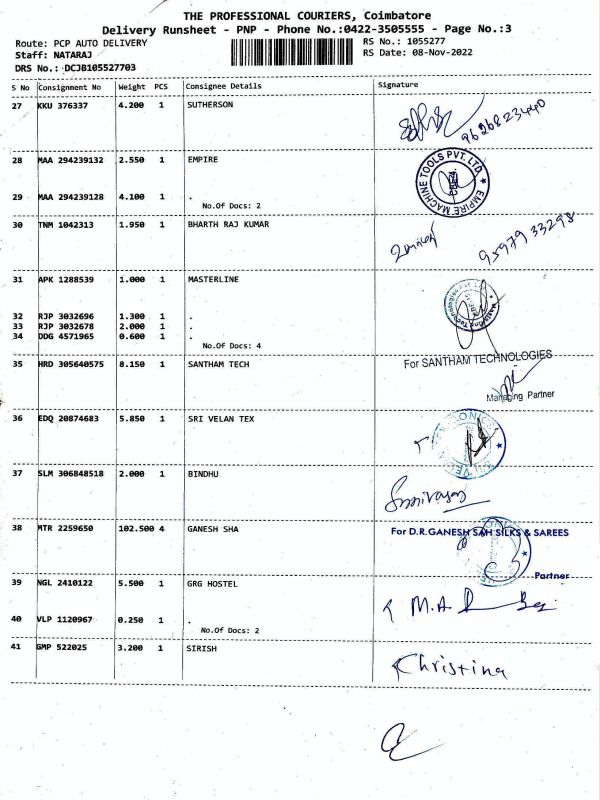 THE PROFESSIONAL COURIERS, Coimbatore
Delivery Runsheet - PNP - Phone No.:0422-3505555 - Page No.:3
Route: PCP AUTO DELIVERY RS No.: 1055277
Staff: NATARAJ RS Date: 08-Nov-2022
DRS No.: DCJB105527703
S No Consignment No Weight PCS Consignee Details Signature
27 KKU 376337 4.200 1 SUTHERSON
9626823440
28 MAA 294239132 2.550 1 EMPIRE
EMPIRE MACHINE TOOLS PVT. LTD.
29 MAA 294239128 4.100 1 .
No.Of Docs: 2
30 TNM 1042313 1.950 1 BHARTH RAJ KUMAR
9597933298
31 APK 1288539 1.000 1 MASTERLINE
32 RJP 3032696 1.300 1 .
33 RJP 3032678 2.000 1 .
34 DDG 4571965 0.600 1 .
No.Of Docs: 4
35 HRD 305640575 8.150 1 SANTHAM TECH
For SANTHAM TECHNOLOGIES
Managing Partner
36 EDQ 20874683 5.850 1 SRI VELAN TEX
37 SLM 306848518 2.000 1 BINDHU
Srinivasan
38 MTR 2259650 102.500 4 GANESH SHA
For D.R.GANESH SAH SILKS & SAREES
Partner
39 NGL 2410122 5.500 1 GRG HOSTEL
M.A
40 VLP 1120967 0.250 1 .
No.Of Docs: 2
41 GMP 522025 3.200 1 SIRISH
Christina